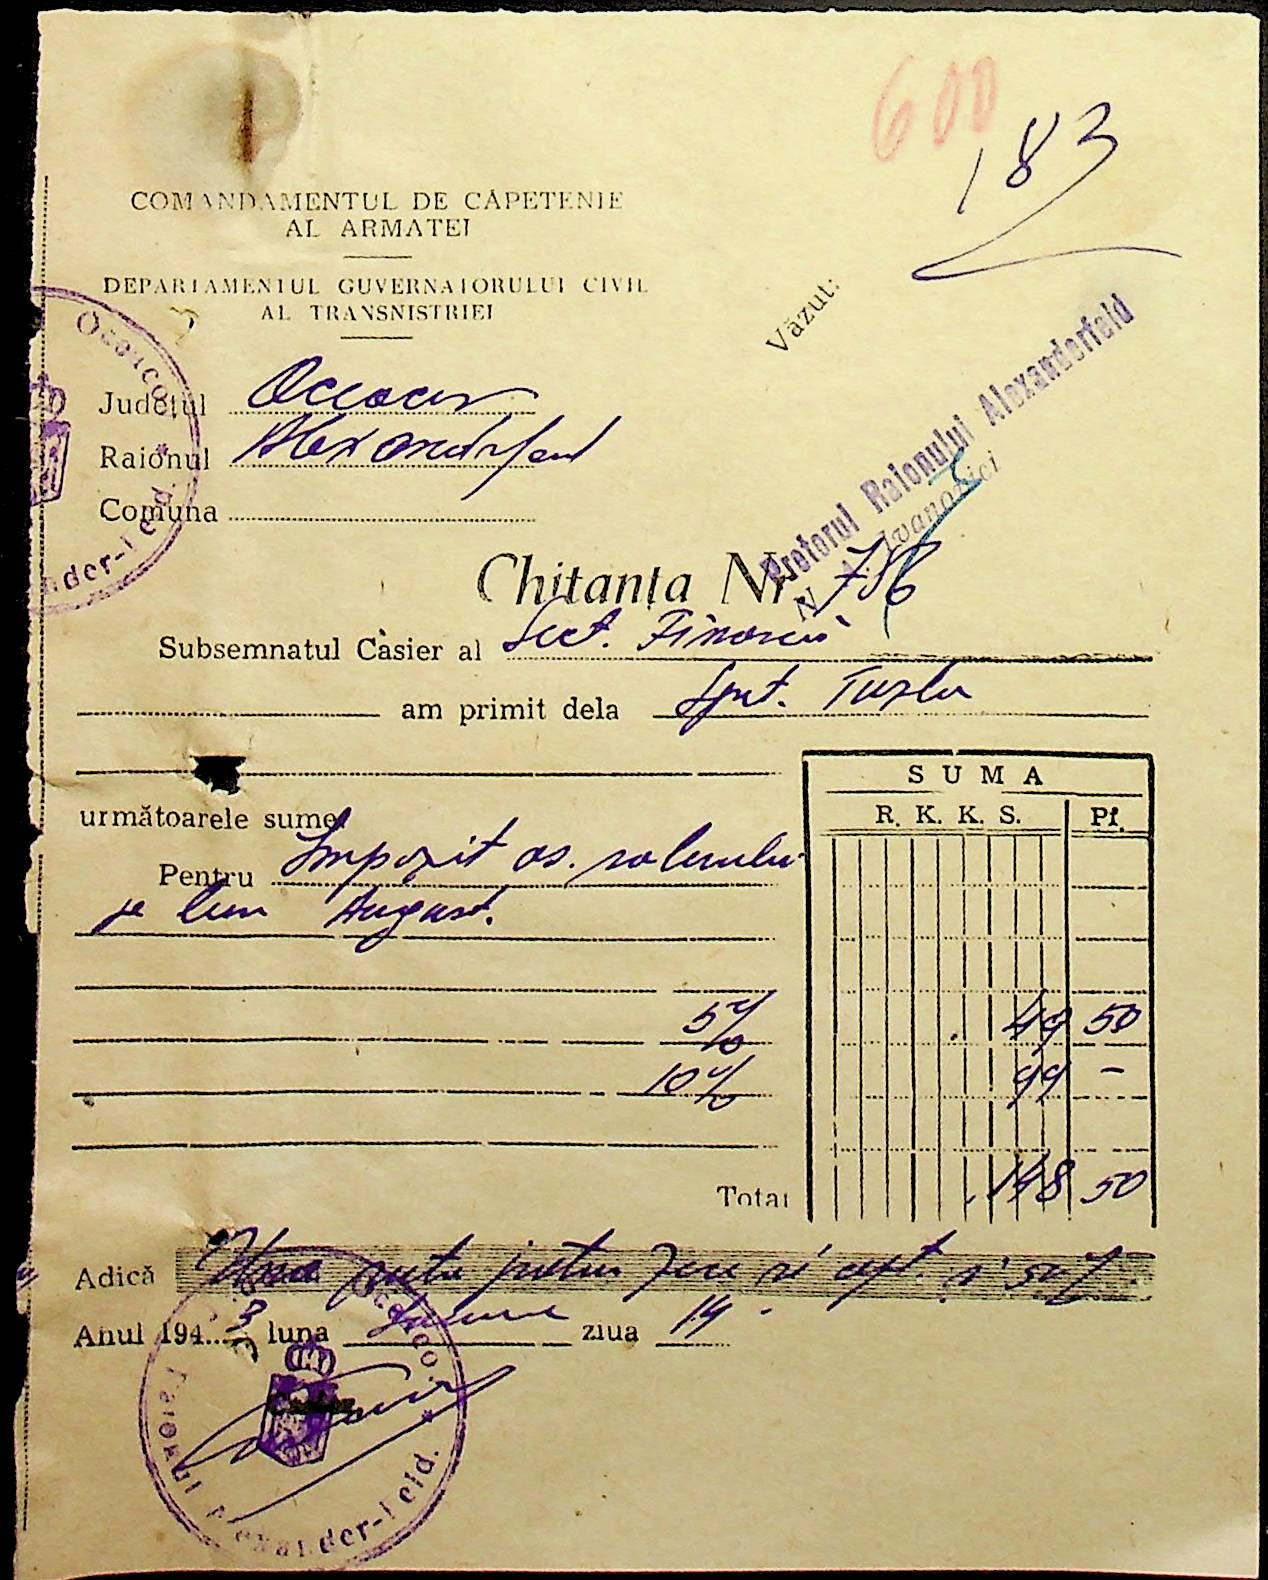 600
183
COMANDAMENTUL DE CĂPETENIE
AL ARMATEI
DEPARTAMENTUL GUVERNATORULUI CIVIL
AL TRANSNISTRIEI
Văzut:
Pretorul Raionului Alexanderfeld
Ivanovici
Județul Oceacov
Raionul Alexandrfeld
Comuna
Chitanța Nr. 786
Subsemnatul Casier al Sect. Financiar
am primit dela Hpt. Tuzla
următoarele sume
Pentru Impozit as. salariului
pe luna August.
SUMA
R. K. K. S. Pf.
5% 49 50
10% 99 -
Total 148 50
Adică
Anul 194 3 luna ziua 14
Casier
Raionul Alexander-Feld.